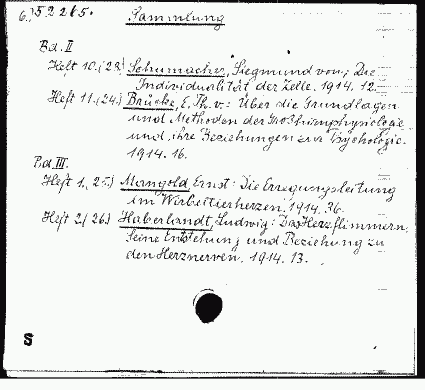 6.) 52265. Sammlung
Bd. II
Heft 10. (23) Schumacher, Siegmund von; Die
Individualität der Zelle. 1914. 12.
Heft 11. (24.) Brücke, E. Th. v.: Über die Grundlagen
und Methoden der Großhirnphysiologie
und ihre Beziehungen zur Psychologie.
1914. 16.
Bd. III.
Heft 1, 25.) Mangold, Ernst: Die Erregungsleitung
im Wirbeltierherzen, 1914. 36.
Heft 2, (26) Haberlandt, Ludwig: Das Herzflimmern,
seine Entstehung und Beziehung zu
den Herznerven. 1914. 13.
S